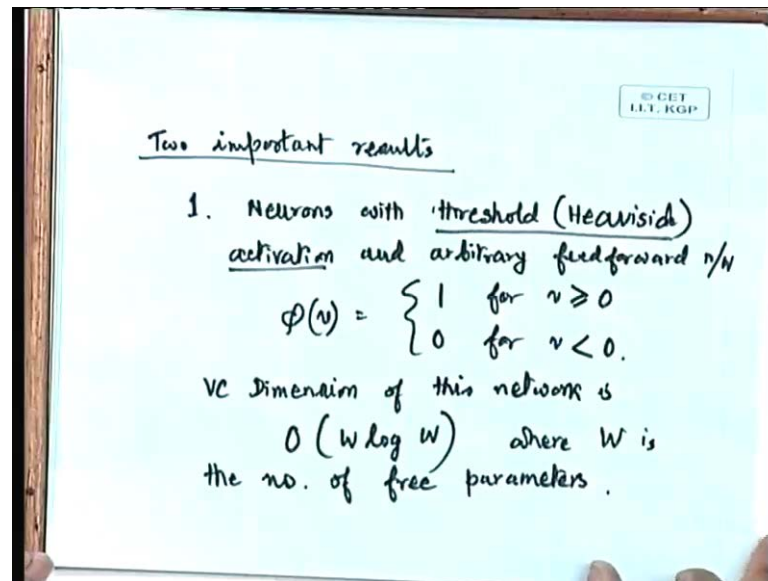 © CET
I.I.T. KGP
Two important results
1. Neurons with threshold (Heaviside)
activation and arbitrary feedforward n/w
φ(v) = { 1 for v ⩾ 0
0 for v < 0.
VC Dimension of this network is
O (W log W) where W is
the no. of free parameters.